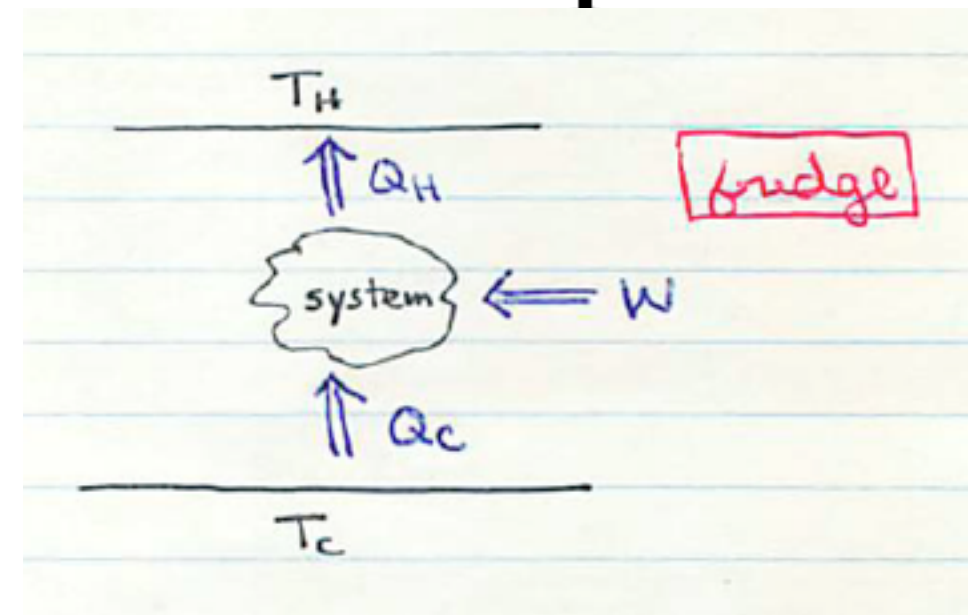 T_H
Q_H
fridge
system
W
Q_C
T_C